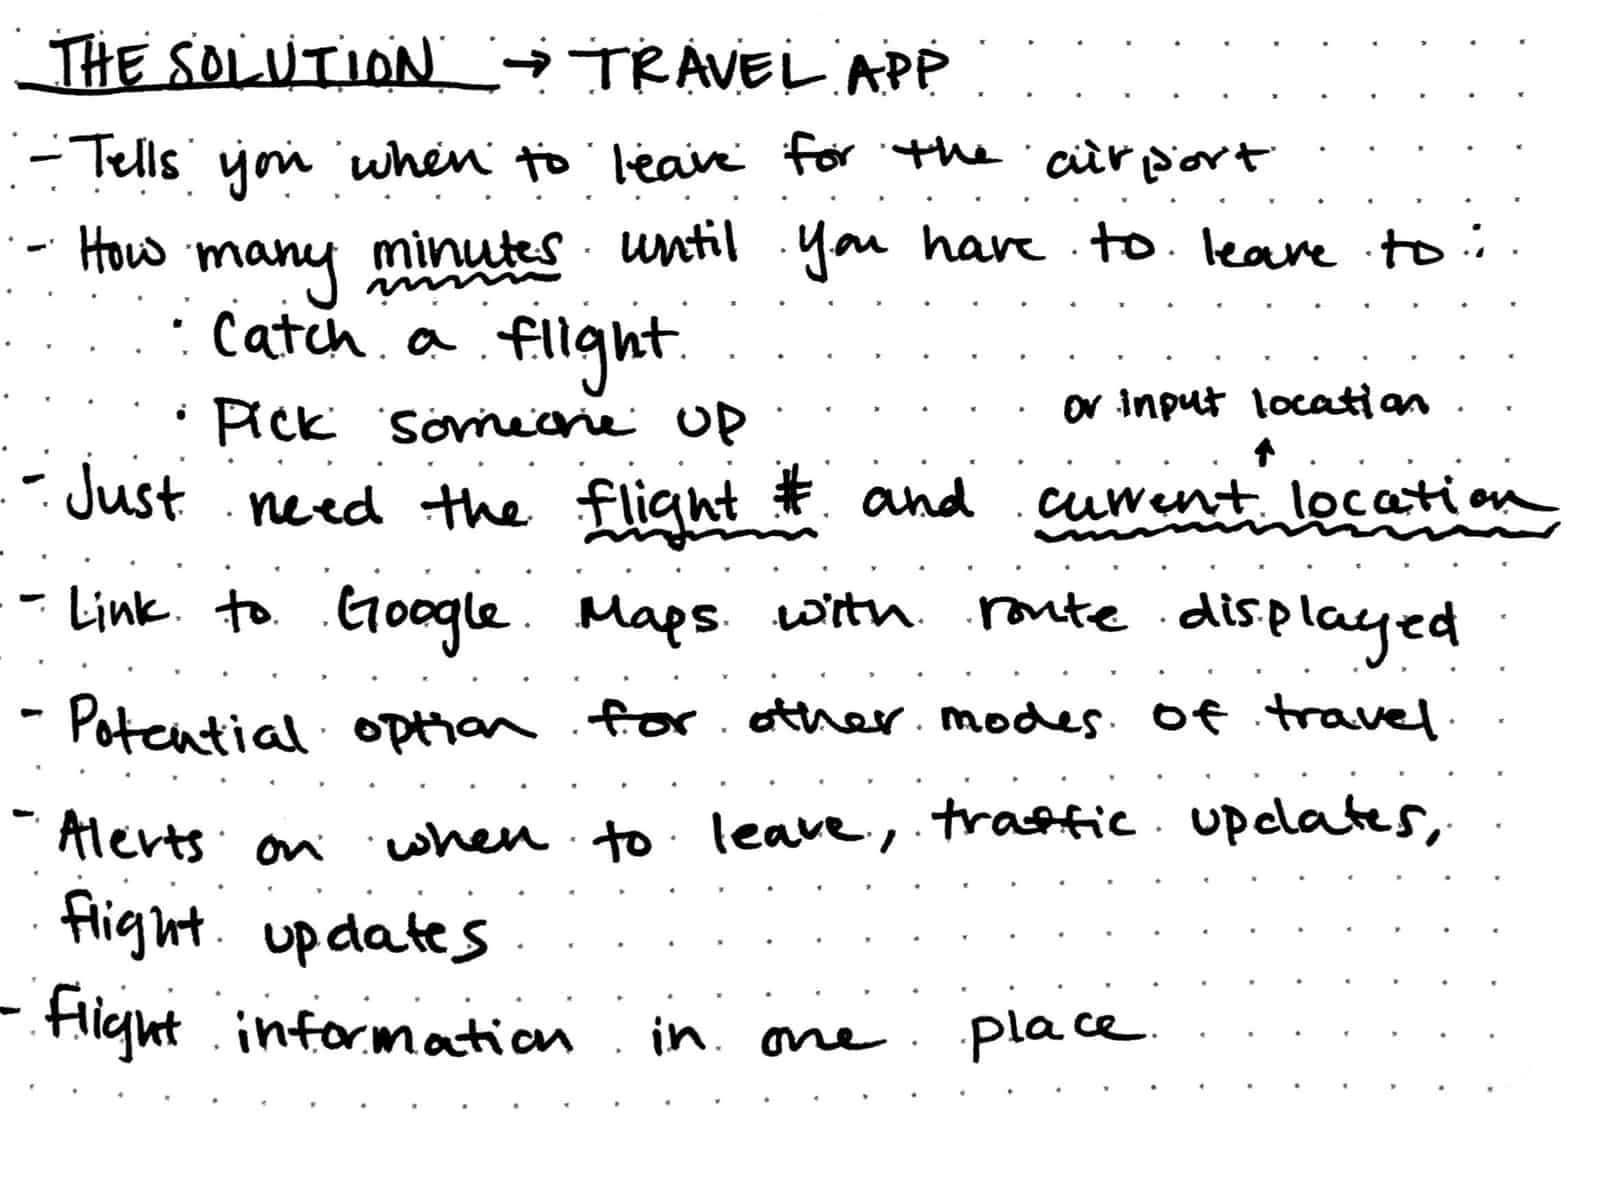 THE SOLUTION → TRAVEL APP
- Tells you when to leave for the airport
- How many minutes until you have to leave to:
· Catch a flight
· Pick someone up
or input location
↑
- Just need the flight # and current location
- Link to Google Maps with route displayed
- Potential option for other modes of travel
- Alerts on when to leave, traffic updates,
flight updates
- flight information in one place